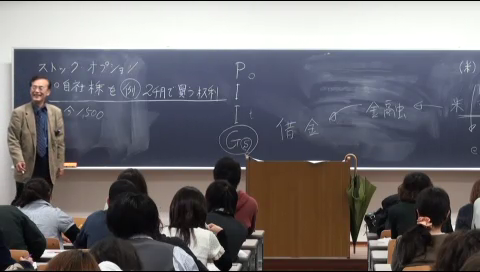 ストック オプション
○自社株を 例 2千円で買う权利
今 1,500
P。
I
I
Gs
借金
金融
米
(米)